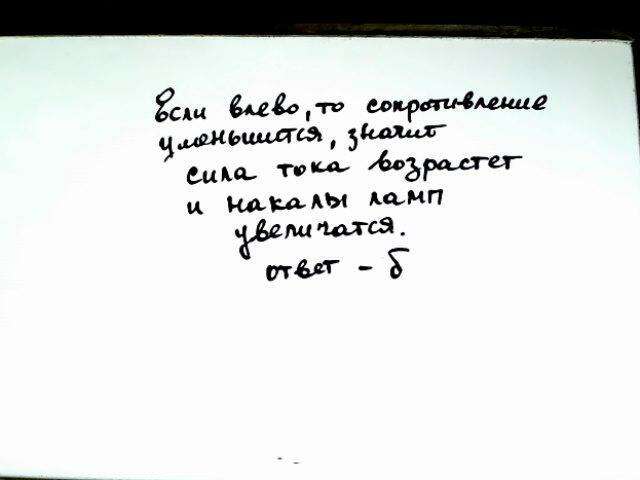 Если влево, то сопротивление
уменьшится, значит
сила тока возрастет
и накалы ламп
увеличатся.
ответ - б